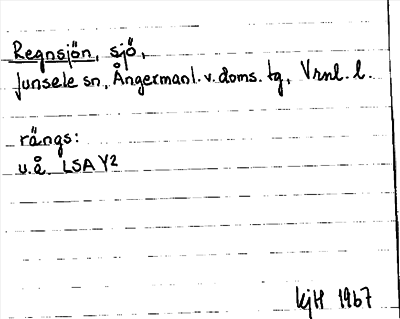 Regnsjön, sjö,
Junsele sn, Ångermanl. v. doms. tg, Vrnl. l.
rängs:
u.å. LSA Y2
kjH 1967